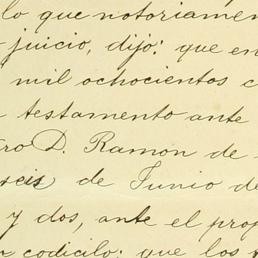 lo que notoriamen
juicio, dijo: que en
mil ochocientos c
testamento ante
ro D. Ramon de
seis de Junio de
y dos, ante el prop
codicilo: que los